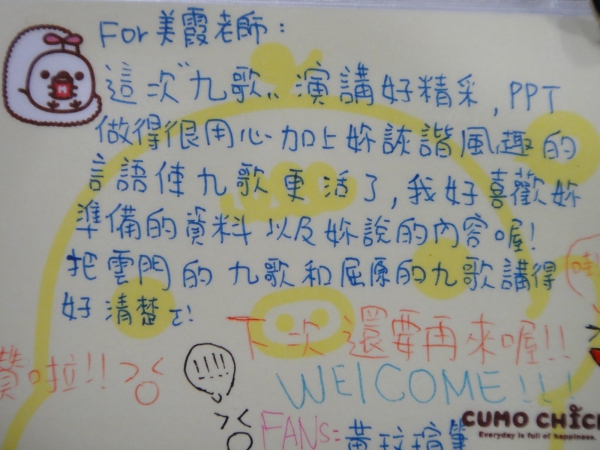 For美霞老師:
這次"九歌"演講好精采,PPT
做得很用心加上妳詼諧風趣的
言語使九歌更活了,我好喜歡妳
準備的資料以及妳說的內容喔!
把雲門的九歌和屈原的九歌講得
好清楚ㄛ!
下次還要再來喔!!
讚啦!!
!!!!
WELCOME!!!
FANS:黃玟瑄筆
CUMO CHIC
Everyday is full of happiness.
M